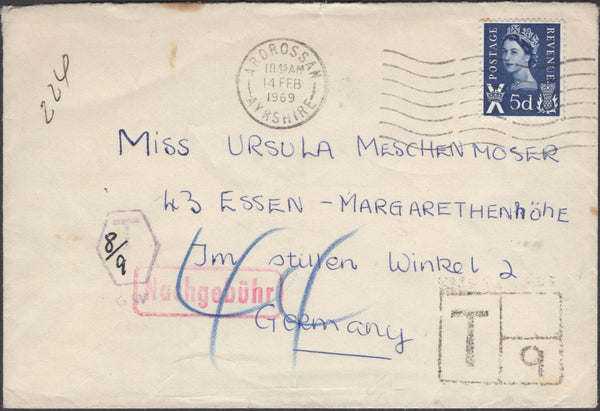 224
ARDROSSAN
10 15 AM
14 FEB
1969
AYRSHIRE
POSTAGE
REVENUE
5d
MISS URSULA MESCHENMOSER
43 ESSEN - MARGARETHENhöhe
Im stillen Winkel 2
Germany
8/9
Nachgebühr
44
T
9